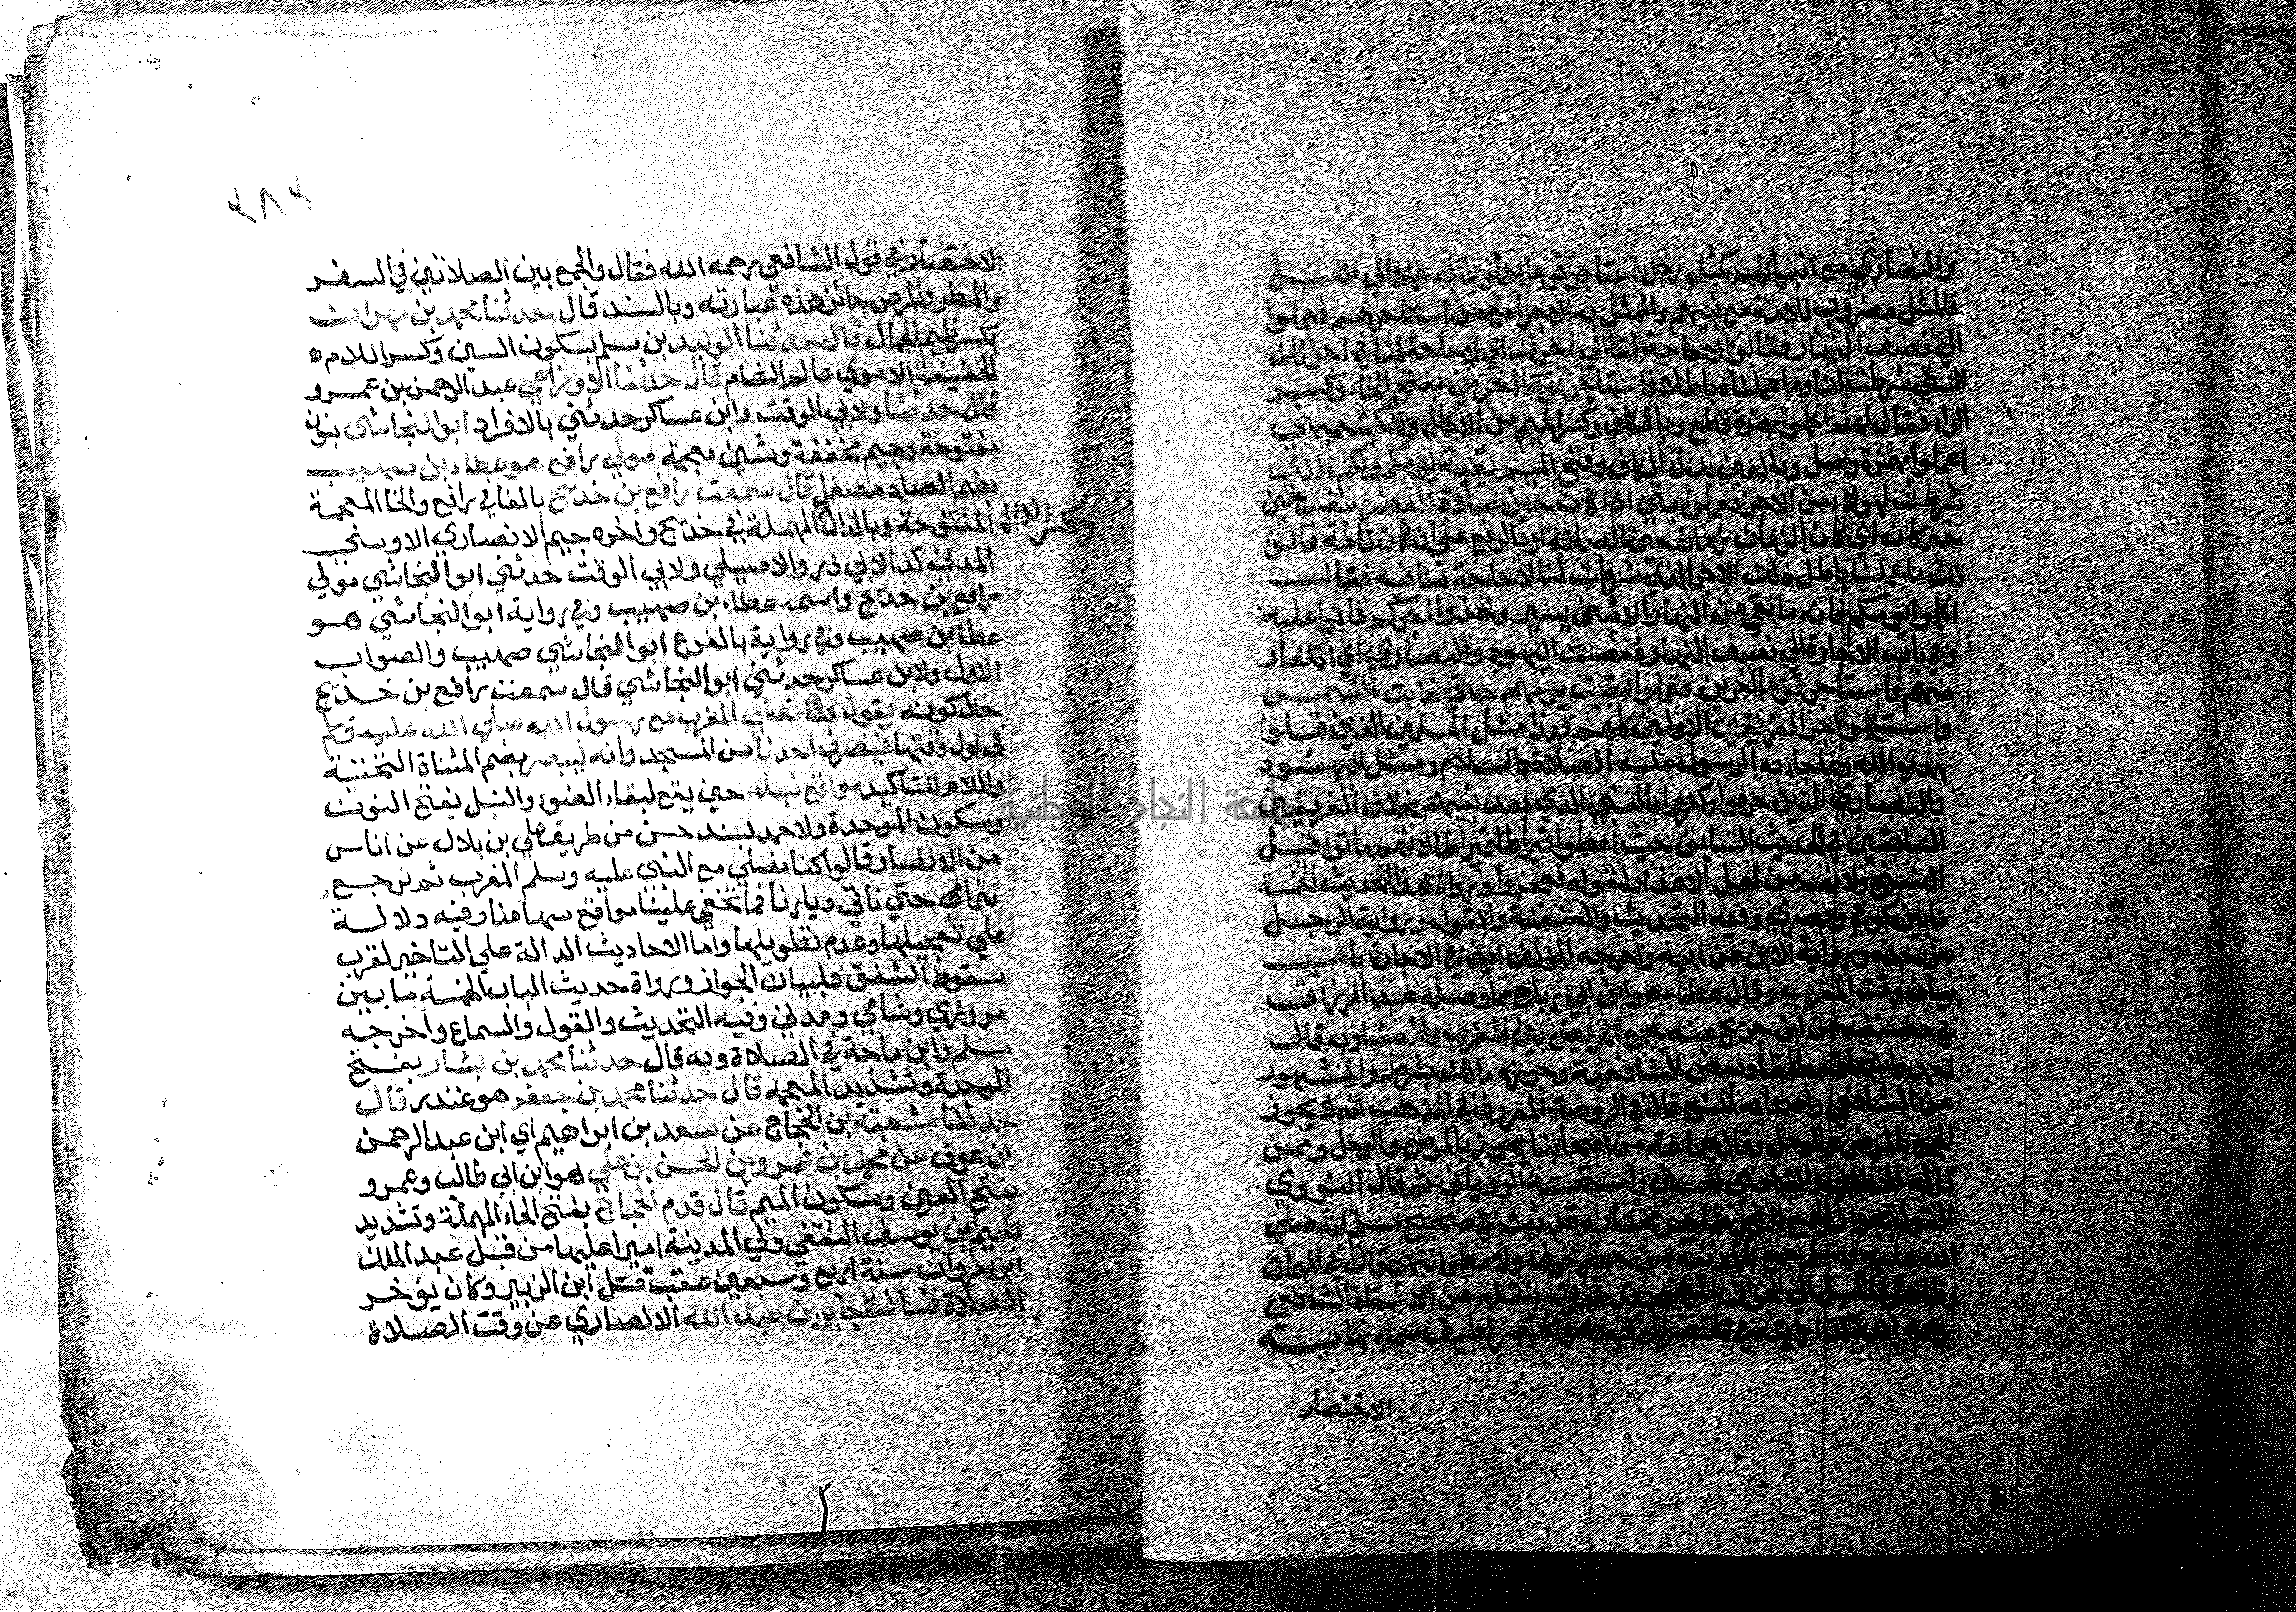 والنصاري مع انبيائهم كمثل رجل استاجر قوما يعملون له عملا الي الليل
فالمثل مضروب للامة مع نبيهم والممثل به الاجرا مع من استاجرهم فعملوا
الي نصف النهار فقالوا لا حاجة لنا الي اجرك اي لا حاجة لنا في اجرتك
التي شرطت لنا وما عملناه باطل فاستاجر قوما اخرين بفتح الخاء وكسر
الراء فقال لهم اكملوا بهمزة قطع وبالكاف وكسر الميم من الاكمال وللكشميهني
اعملوا بهمزة وصل وبالعين بدل الكاف وفتح الميم بقية يومكم ولكم الذي
شرطت لهولاء من الاجر فعملوا حتي اذا كان حين صلاة العصر بنصب حين
خبر كان اي كان الزمان زمان حين الصلاة او بالرفع علي ان كان تامة قالوا
لك ما عملنا باطل ذلك الاجر الذي شرطت لنا لا حاجة لنا فيه فقال
اكملوا يومكم فانه ما بقي من النهار الا شئ يسير وخذوا اجركم فابوا عليه
وفي باب الاجارة الي نصف النهار فغضبت اليهود والنصاري اي الكفار
منهم فاستاجر قوما اخرين فعملوا بقيت يومهم حتي غابت الشمس
واستكملوا اجر الفريقين الاولين كلهم فهذا مثل المسلمين الذين قبلوا
هدي الله وما جاء به الرسول عليه الصلاة والسلام ومثل اليهود
والنصاري الذين حرفوا وكفروا بالنبي الذي بعد نبيهم بخلاف الفريقين
السابقين في الحديث السابق حيث اعطوا قيراطا قيراطا لانهم ماتوا قبل
النسخ ولانهم من اهل الاعذار لقوله فعجزوا ورواة هذا الحديث الخمسة
ما بين كوفي وبصري وفيه التحديث والعنعنة والقول ورواية الرجل
عن جده ورواية الابن عن ابيه واخرجه المؤلف ايضا في الاجارة باب
بيان وقت المغرب وقال عطاء هو ابن ابي رباح مما وصله عبد الرزاق
في مصنفه عن ابن جريج عنه يجمع المريض بين المغرب والعشاء وبه قال
احمد واسحاق مطلقا وبعض الشافعية وجوزه مالك بشرطه والمشهور
عن الشافعي واصحابه المنع قال في الروضة المعروف في المذهب انه لا يجوز
الجمع بالمرض والوحل وقال جماعة من اصحابنا يجوز بالمرض والوحل وممن
قاله الخطابي والقاضي الحسين واستحسنه الروياني ثم قال النووي
القول بجواز الجمع للمرض ظاهر مختار وقد ثبت في صحيح مسلم انه صلي
الله عليه وسلم جمع بالمدينة من غير خوف ولا مطر انتهي قال في المهمات
وظاهره الميل الي الجواز بالمرض وقد ظفرت بنقله عن الاستاذ الشافعي
رحمه الله كذا رايته في مختصر المزني وهو مختصر لطيف سماه نهاية
الاختصار
٢٨٢
الاختصار في قول الشافعي رحمه الله فقال والجمع بين الصلاتين في السفر
والمطر والمرض جائز هذه عبارته وبالسند قال حدثنا محمد بن مهران
بكسر الميم الجمال قال حدثنا الوليد بن مسلم بسكون السين وكسر اللام
الخفيفة الاموي عالم الشام قال حدثنا الاوزاعي عبد الرحمن بن عمرو
قال حدثنا ولابي الوقت وابن عساكر حدثني بالافراد ابو النجاشي بنون
مفتوحة وجيم مخففة وشين معجمة مولي رافع هو عطاء بن صهيب
بضم الصاد مصغرا قال سمعت رافع بن خديج بالفا في رافع والخا المعجمة
المفتوحة وبالدال المهملة في خديج واخره جيم الانصاري الاوسي
وكسر الدال
المدني كذا لابي ذر والاصيلي ولابي الوقت حدثني ابو النجاشي مولي
رافع بن خديج واسمه عطاء بن صهيب وفي رواية ابو النجاشي هو
عطا بن صهيب وفي رواية بالفرع ابو النجاشي صهيب والصواب
الاول ولابن عساكر حدثني ابو النجاشي قال سمعت رافع بن خديج
حال كونه يقول كنا نصلي المغرب مع رسول الله صلي الله عليه وسلم
في اول وقتها فينصرف احدنا من المسجد وانه ليبصر بضم المثناة التحتية
واللام للتاكيد مواقع نبله حين يقع لبقاء الضوء والنبل بفتح النون
وسكون الموحدة ولاحمد بسند حسن من طريق علي بن بلال عن اناس
من الانصار قالوا كنا نصلي مع النبي عليه وسلم المغرب ثم نرجع
نترامي حتي ناتي ديارنا فما تخفي علينا مواقع سهامنا وفيه دلالة
علي تعجيلها وعدم تطويلها واما الاحاديث الدالة علي التاخير لقرب
سقوط الشفق فلبيان الجواز ورواة حديث الباب الخمسة ما بين
مروزي وشامي ومدني وفيه التحديث والقول والسماع واخرجه
مسلم وابن ماجة في الصلاة وبه قال حدثنا محمد بن بشار بفتح
الوحدة وتشديد المعجمه قال حدثنا محمد بن جعفر هو غندر قال
حدثنا شعبة بن الحجاج عن سعد بن ابراهيم اي ابن عبد الرحمن
بن عوف عن محمد بن عمرو بن الحسن بن علي هو ابن ابي طالب وعمرو
بفتح العين وسكون الميم قال قدم الحجاج بفتح الحاء المهملة وتشديد
الجيم ابن يوسف الثقفي والي المدينة اميرا عليها من قبل عبد الملك
ابن مروان سنة اربع وسبعين عقب قتل ابن الزبير وكان يؤخر
الصلاة فسالنا جابر بن عبد الله الانصاري عن وقت الصلاة
جامعة النجاح الوطنية